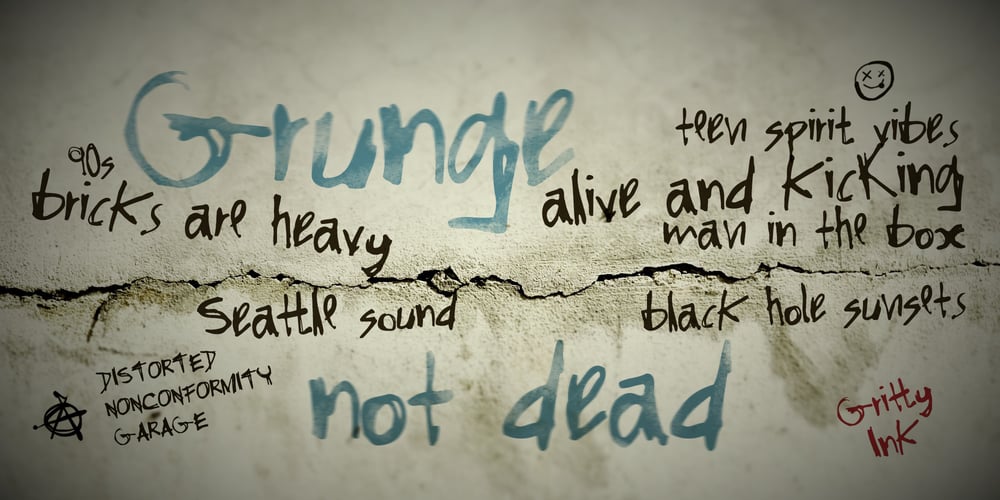 Grunge
teen spirit vibes
90s
bricks are heavy
alive and kicking
man in the box
Seattle sound
black hole sunsets
not dead
DISTORTED
NONCONFORMITY
GARAGE
Gritty
Ink